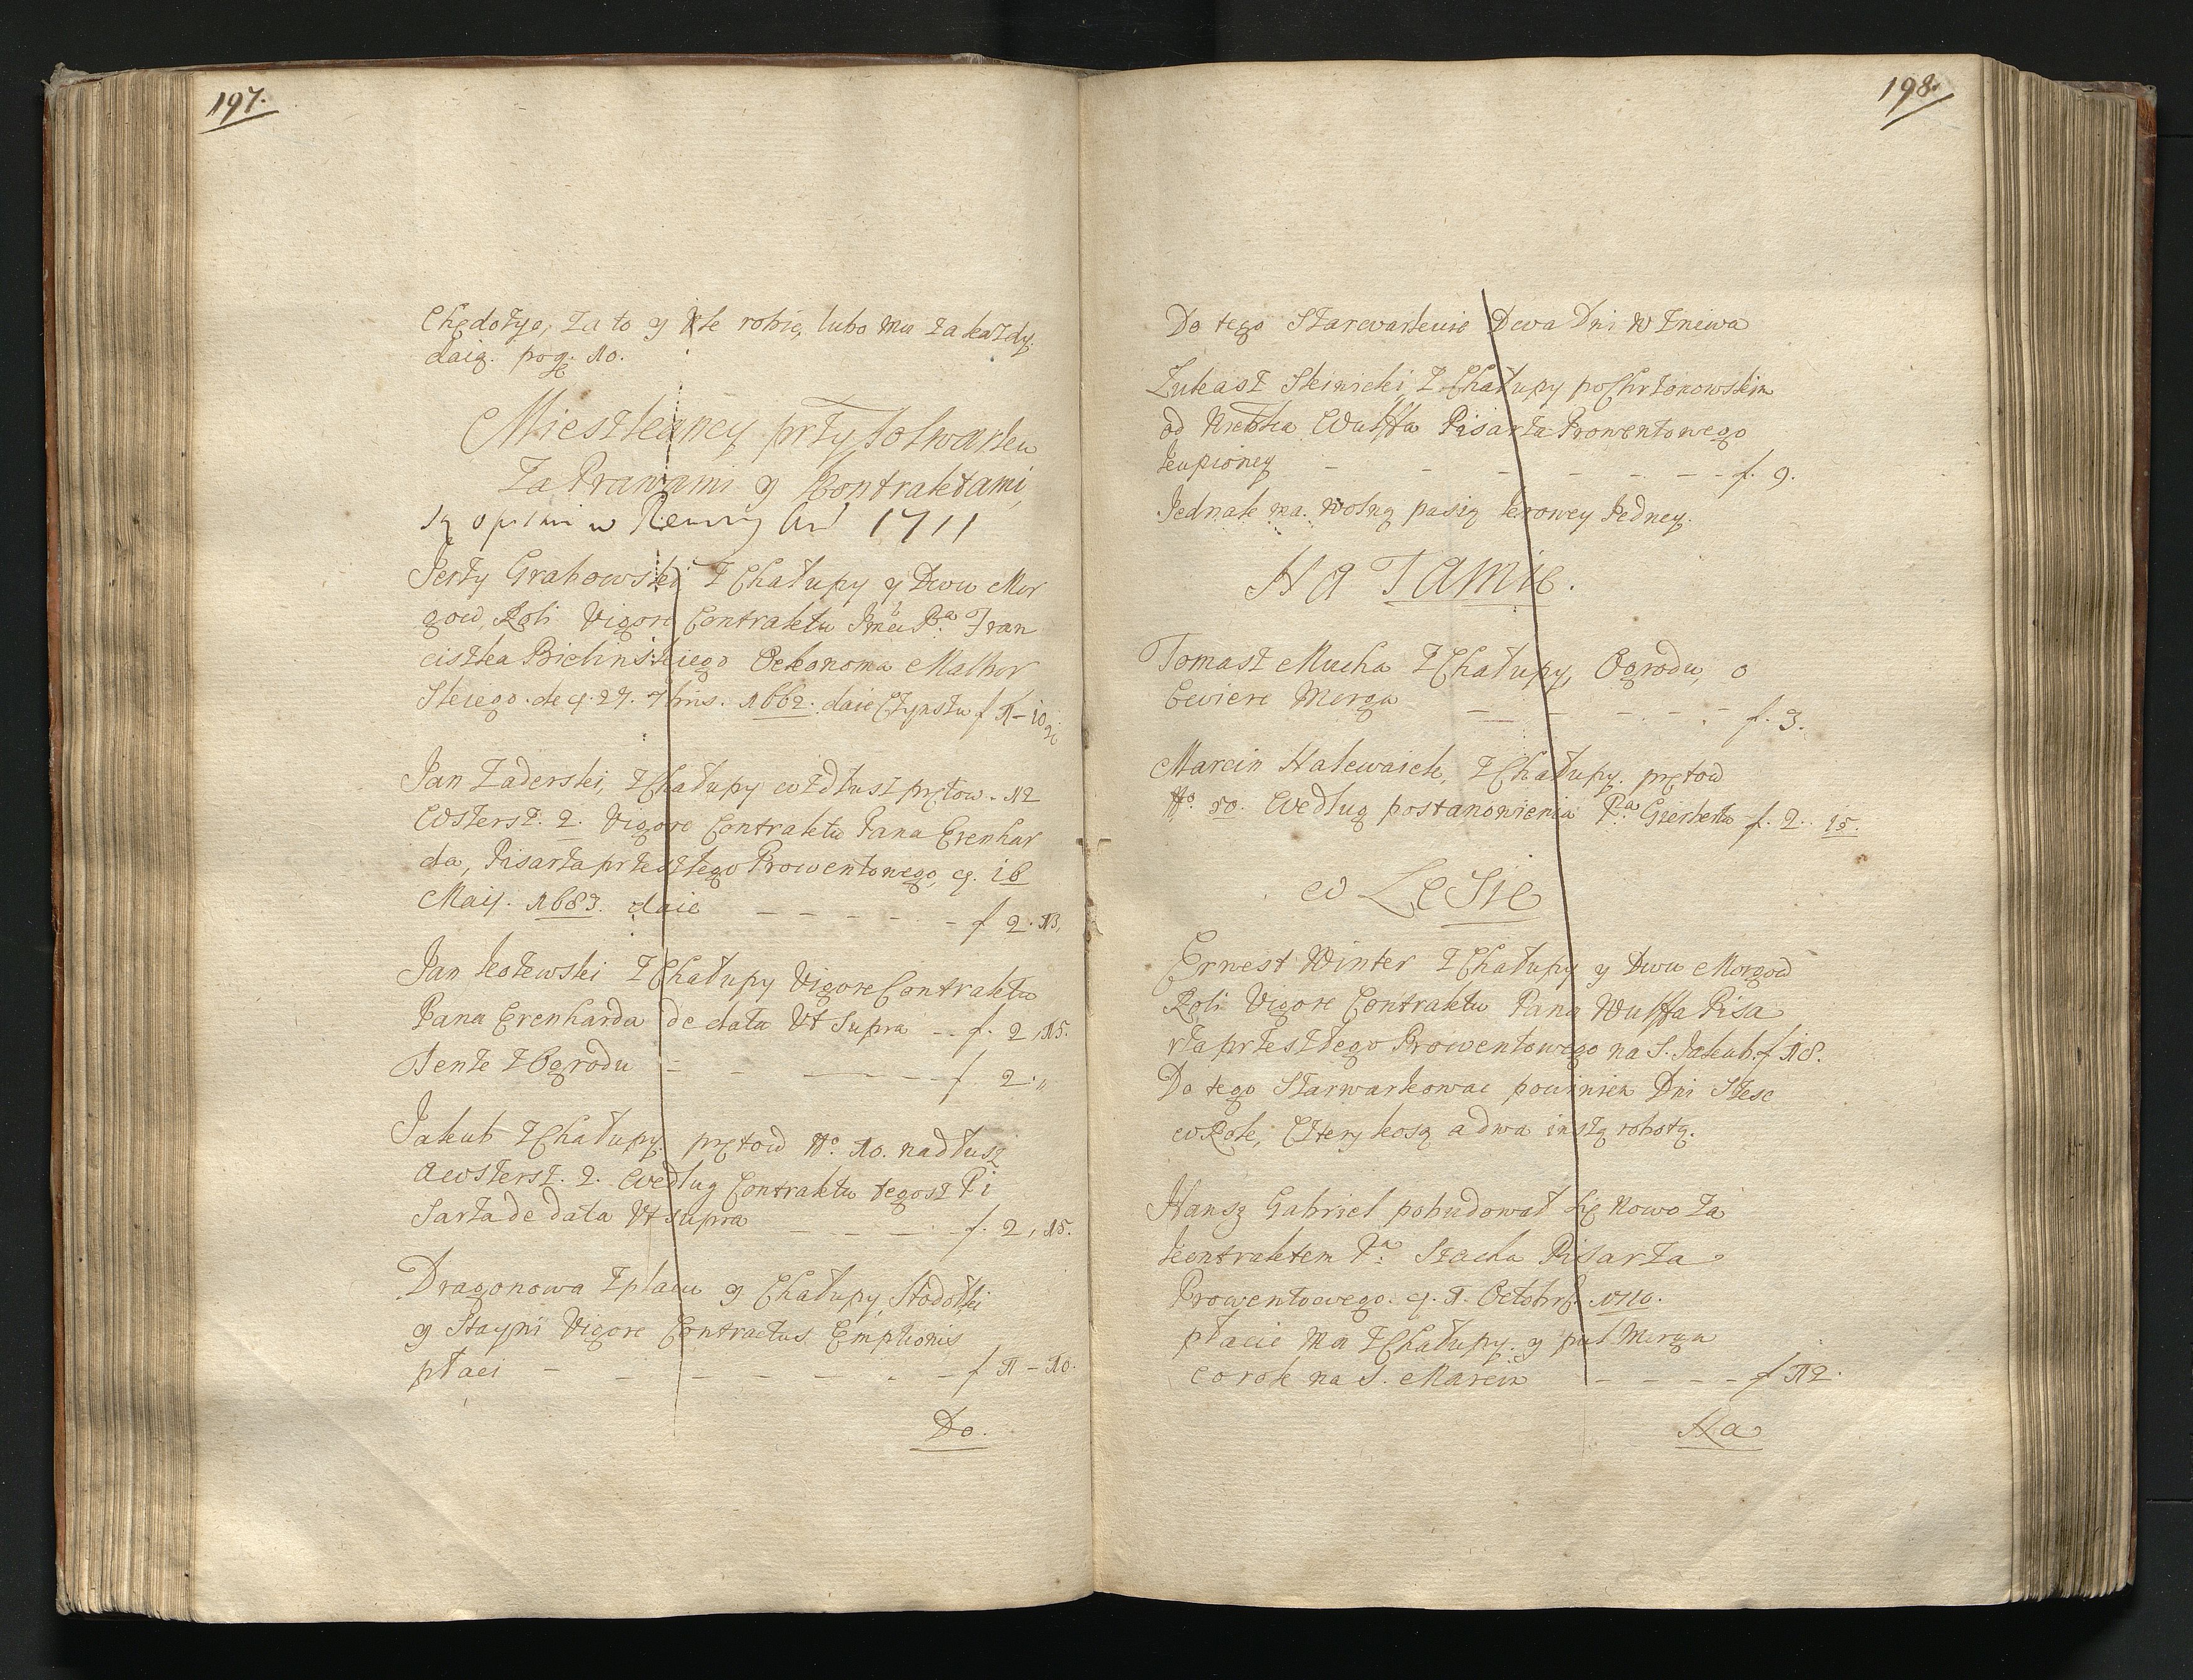 197.
Chędożyć, za to y źle robić, lubo mu za każdy
daią. po g. 10.
Mieszkancy przy folwarku
Za Prawami y Kontraktami,
są opisani w 1711
Jerzy Grabowski z Chałupy y Dwu Mor
gow, Roli Vigore Contraktu Jmci Pa. Fran
ciszka Bielinskiego Oekonoma Malbor
Skiego. de 9. 27. 7bris. 1662. daie Czynszu f 1-10
Jan Zaderski, z Chałupy wzdłusz prętow. 12
Wszersz. 2. Vigore Contraktu Pana Erenhar
da, Pisarza przeszłego Prowentowego, 9. 16
Maij. 1683. daie - - - - - - f 2. 13,
Jan Kozewski z Chałupy Vigore Contraktu
Pana Erenharda de data Vt Supra - - f. 2, 15.
Tenże z Ogrodu - - - - - - f 2. "
Jakub z Chałupy. prętow No. 10. nadłusz
A wszersz. 2. Według Contraktu tegosz Pi
Sarza de data Vt supra - - - - f. 2, 15.
Dragonowa z placu y Chałupy, Stodołki
y Stayni Vigore Contractus Emptionis
płaci - - - - - - - f 11 - 10.
Do.
198.
Do tego Szarwarkuie Dwa Dni w Zniwa
Łukasz Skinicki, z Chałupy po Chrzonowskim
od Niebka Wulffa Pisarza Prowentowego
kupioney - - - - - - - f. 9.
Jednak ma. wolną pasią krowey Jedney.
Na Tamie.
Tomasz Mucha z Chałupy, Ogrodu, o
cwierc Morga - - - - - - f. 3.
Marcin Halewaick, z Chałupy. prętow
No. 10. Według postanowienia Pa. Gierketa f. 2. 15.
w Lesie
Ernest Winter z Chałupy y Dwu Morgow
Roli Vigore Contraktu Pana Wulffa Pisa
rza przeszłego Prowentowego na S. Jakub. f 18.
Do tego Szarwarkowac powinien Dni Szesc
w Rok, Cztery kosą a dwa inszą robotą.
Hansz Gabriel pobudował się Nowo za
kontraktem Pa. Stacha Pisarza
Prowentowego. 9. 1. Octobrs. 1710.
płacic ma z Chałupy. y puł Morga
co rok na S. Marcin - - - - f 12.
Na